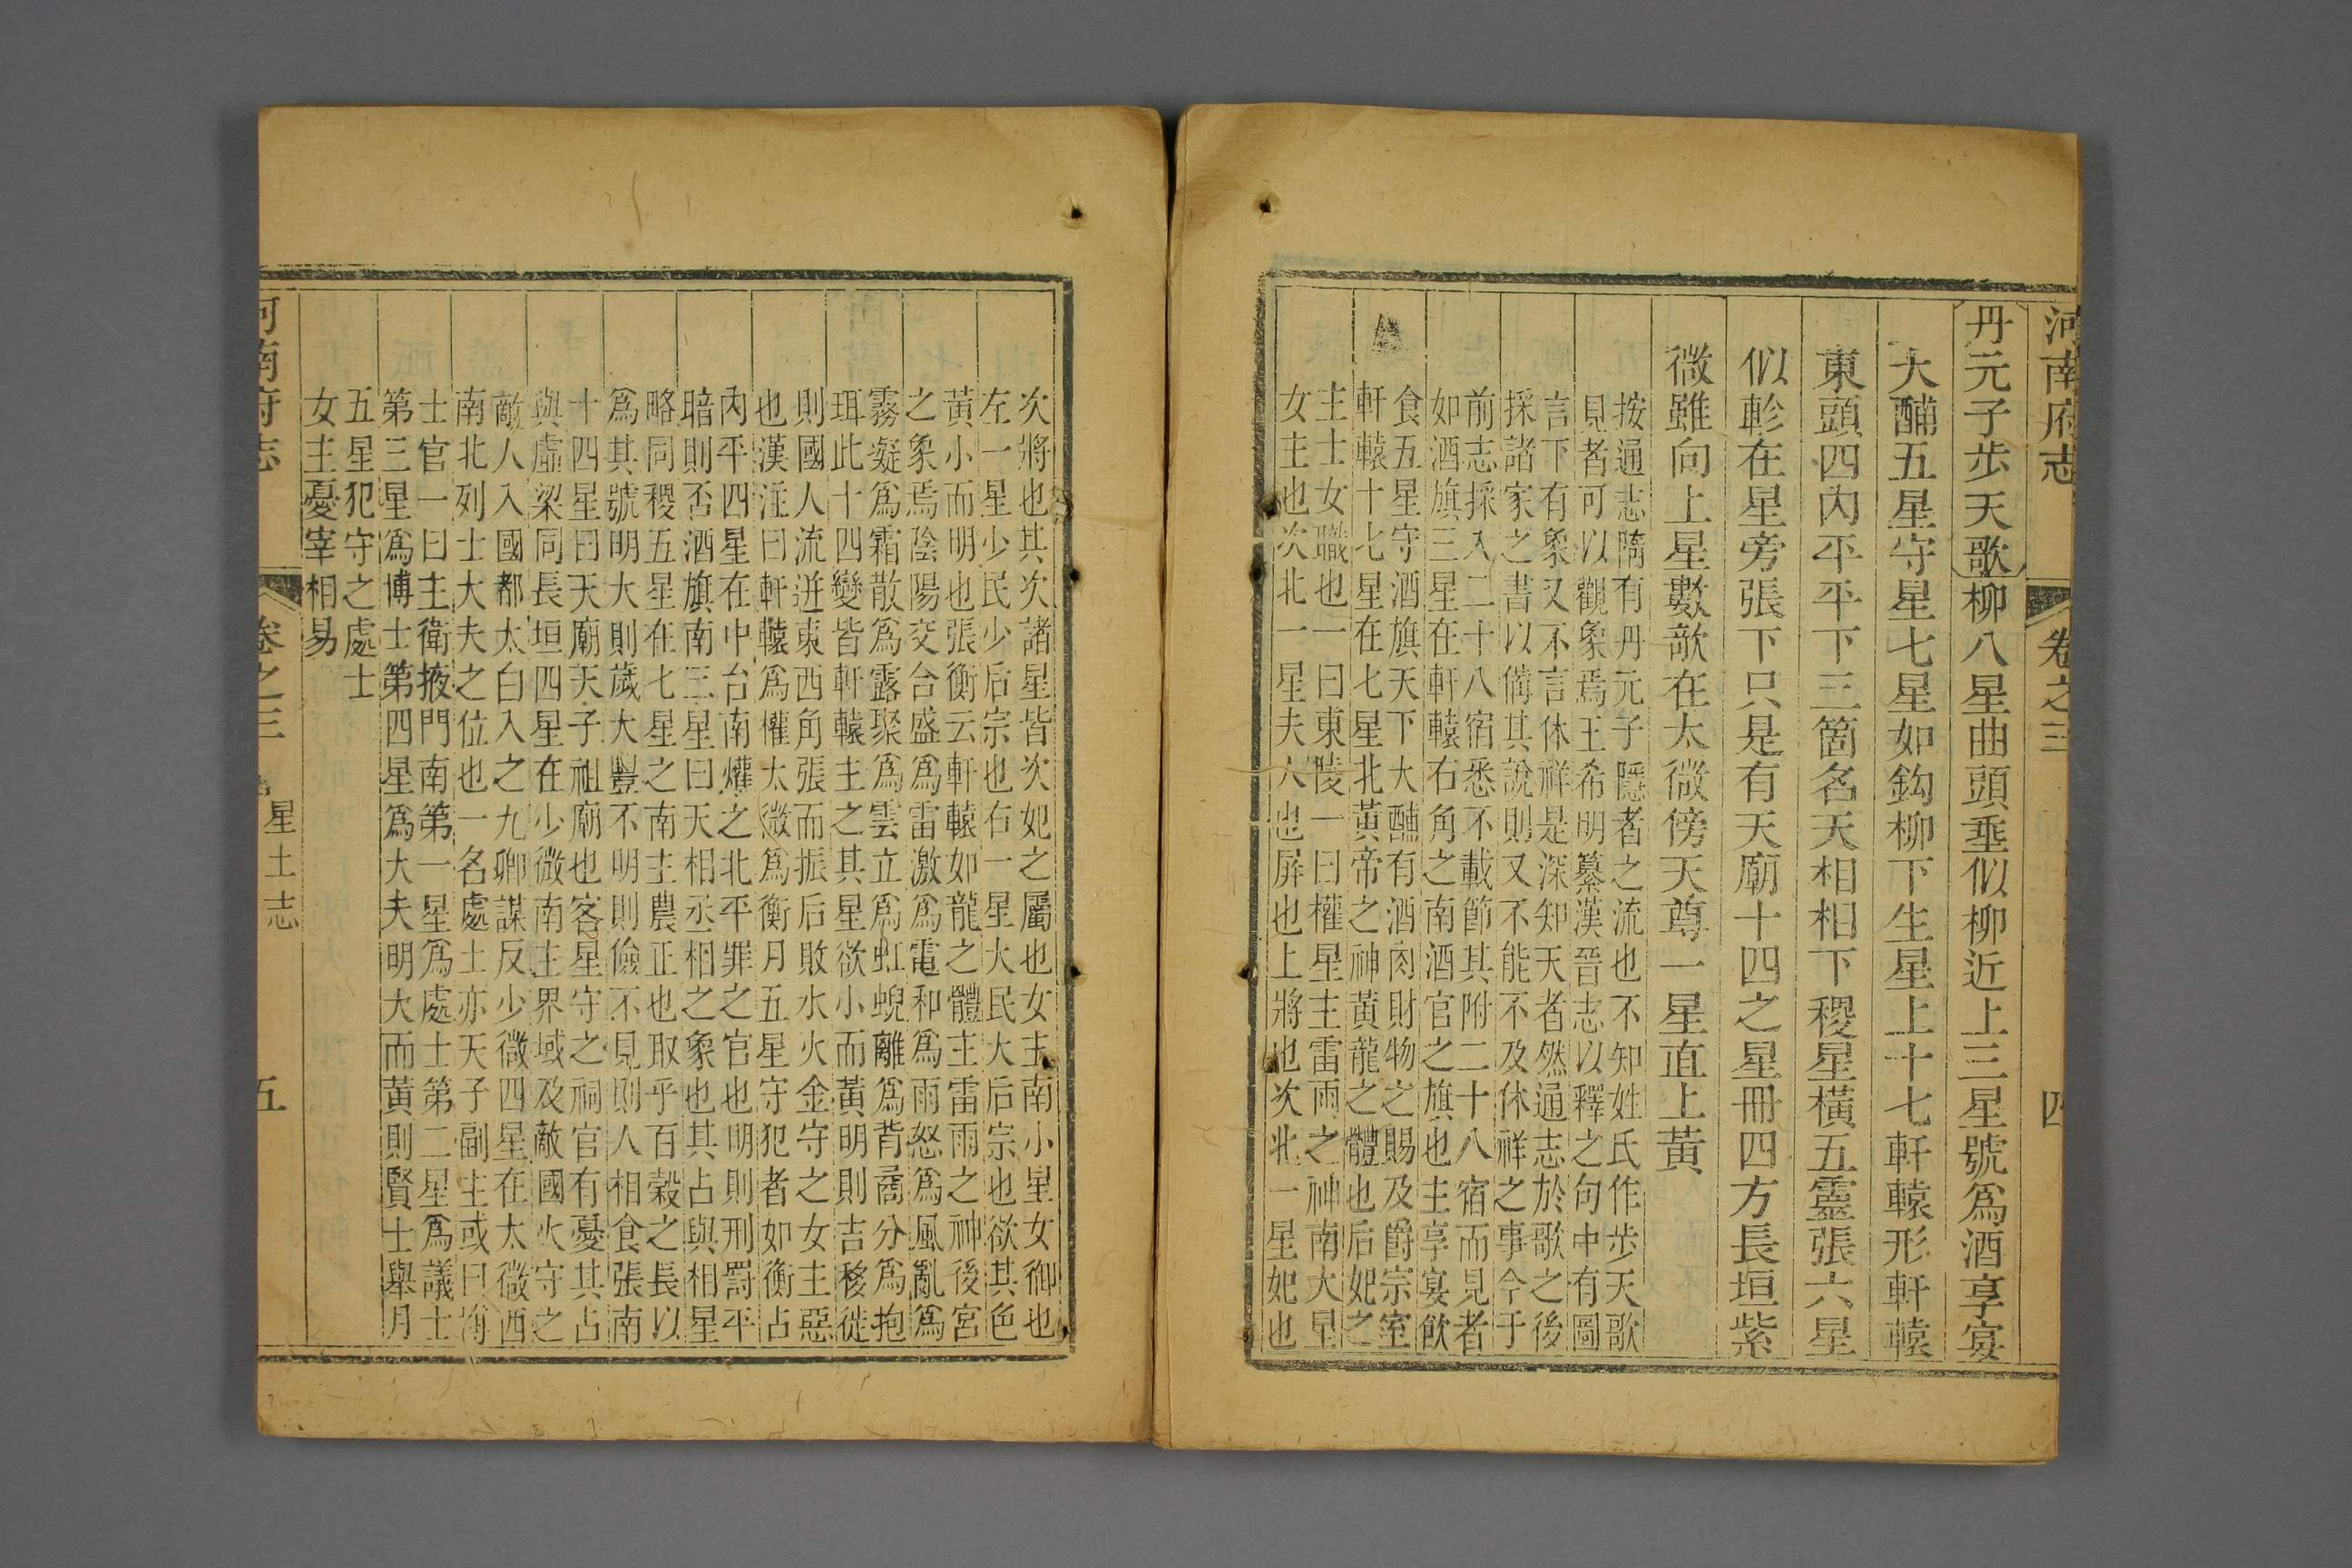 河南府志 卷之三 四
丹元子步天歌柳八星曲頭垂似柳近上三星號爲酒享宴
大酺五星守星七星如鈎柳下生星上十七軒轅形軒轅
東頭四內平平下三箇名天相相下稷星橫五靈張六星
似軫在星旁張下只是有天廟十四之星冊四方長垣紫
微雖向上星數欹在太微傍天尊一星直上黃
按通志隋有丹元子隱者之流也不知姓氏作步天歌
見者可以觀象焉王希明纂漢晉志以釋之句中有圖
言下有象又不言休祥是深知天者然通志於歌之後
採諸家之書以備其說則又不能不及休祥之事今于
前志採入二十八宿悉不載節其附二十八宿而見者
如酒旗三星在軒轅右角之南酒官之旗也主享宴飲
食五星守酒旗天下大酺有酒肉財物之賜及爵宗室
軒轅十七星在七星北黃帝之神黃龍之體也后妃之
主士女職也一曰東陵一曰權星主雷雨之神南大星
女主也次北一星夫人也屏也上將也次北一星妃也
次將也其次諸星皆次妃之屬也女主南小星女御也
左一星少民少后宗也右一星大民大后宗也欲其色
黃小而明也張衡云軒轅如龍之體主雷雨之神後宮
之象焉陰陽交合盛爲雷激爲電和爲雨怒爲風亂爲
霧凝爲霜散爲露聚爲雲立爲虹蜺離爲背矞分爲抱
珥此十四變皆軒轅主之其星欲小而黃明則吉移徙
則國人流迸東西角張而振后敗水火金守之女主惡
也漢注曰軒轅爲權太微爲衡月五星守犯者如衡占
內平四星在中台南爟之北平罪之官也明則刑罰平
暗則否酒旗南三星曰天相丞相之象也其占與相星
略同稷五星在七星之南主農正也取乎百穀之長以
爲其號明大則歲大豐不明則儉不見則人相食張南
十四星曰天廟天子祖廟也客星守之祠官有憂其占
與虛梁同長垣四星在少微南主界域及敵國火守之
敵人入國都太白入之九卿謀反少微四星在太微西
南北列士大夫之位也一名處士亦天子副主或曰博
士官一曰主衛掖門南第一星爲處士第二星爲議士
第三星爲博士第四星爲大夫明大而黃則賢士舉月
五星犯守之處士
女主憂宰相易
河南府志 卷之三 星土志 五